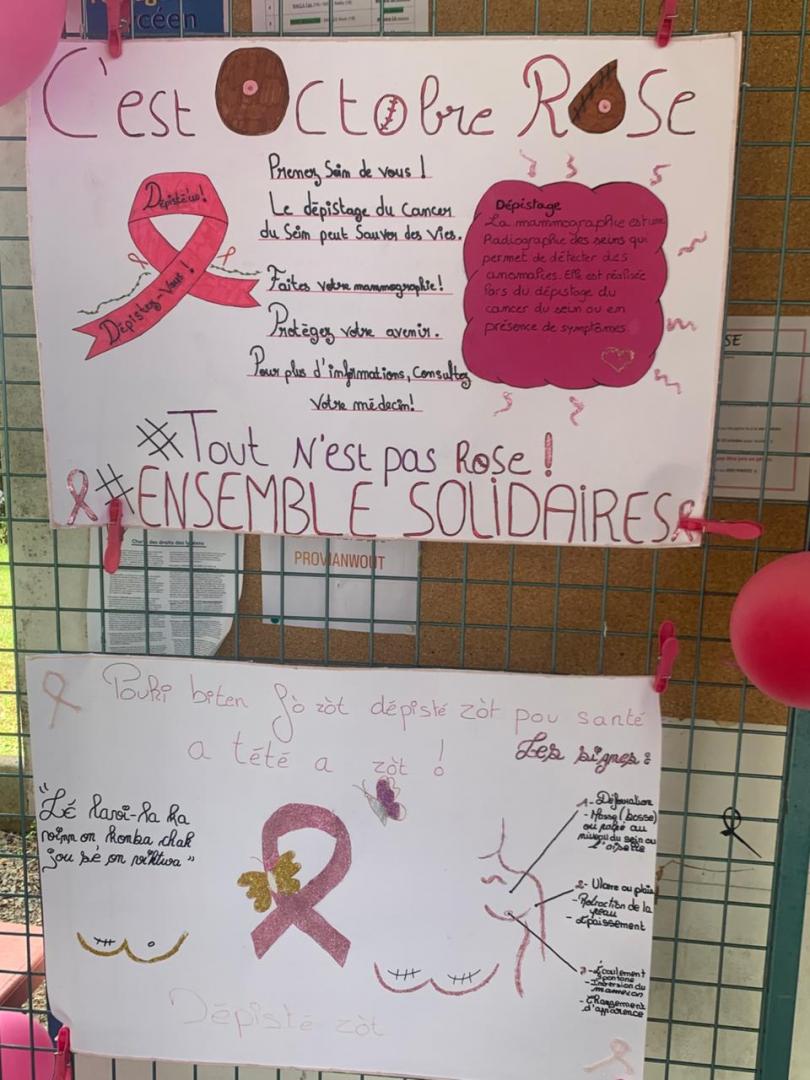 céen
C'est Octobre Rose
Dépisté us!
Dépistez-Vous!
Prenez Sein de vous !
Le dépistage du Cancer
du Sein peut Sauver des Vies.
Faites votre mammographie!
Protégez votre avenir.
Pour plus d'informations, Consultez
Votre médecin!
Dépistage
La mammographie est une
Radiographie des seins qui
permet de détecter des
anomalies. Elle est réalisée
lors du dépistage du
cancer du sein ou en
présence de symptômes
#Tout N'est pas Rose !
#ENSEMBLE SOLIDAIRES
SE
Charte des droits des lycéens
PROVIANWOUT
Pouki biten fò zòt dépisté zòt pou santé
a tété a zòt !
Les signes :
"Lé
ka
on konba chak
jou sé on viktwa"
1- Déformation
- Masse (bosse)
ou
au
niveau du sein ou
l'aisselle
2- Ulcère ou plaie
- Rétraction de la
peau
- Épaississement
3- Écoulement
spontané
- Inversion du
mamelon
- Changement
d'apparence
Dépisté zòt